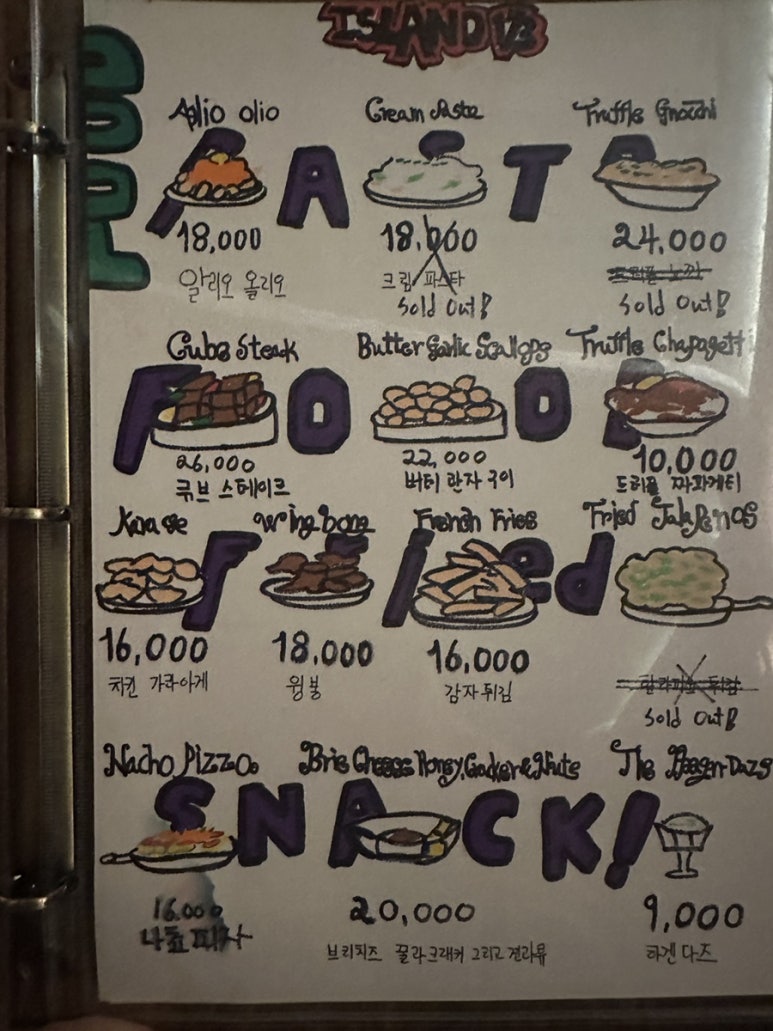 ISLAND 123
FOOD
Aglio olio
Cream Pasta
Truffle Gnocchi
PASTA
18,000
18,000
24,000
알리오 올리오
크림 파스타
트러플 뇨끼
Sold Out!
Sold Out!
Cube Steak
Butter Garlic Scallops
Truffle Chapagetti
FOOD
26,000
22,000
10,000
큐브 스테이크
버터 관자 구이
트러플 짜파게티
Karage
Wing bong
French Fries
Fried Jalapenos
Fried
16,000
18,000
16,000
치킨 가라아게
윙봉
감자 튀김
할라피뇨 튀김
Sold Out!
Nacho Pizza
Brie Cheese Honey, Cracker & Nuts
The Haagen-Dazs
SNACK!
16,000
20,000
9,000
나쵸 피자
브리치즈 꿀과 크래커 그리고 견과류
하겐 다즈